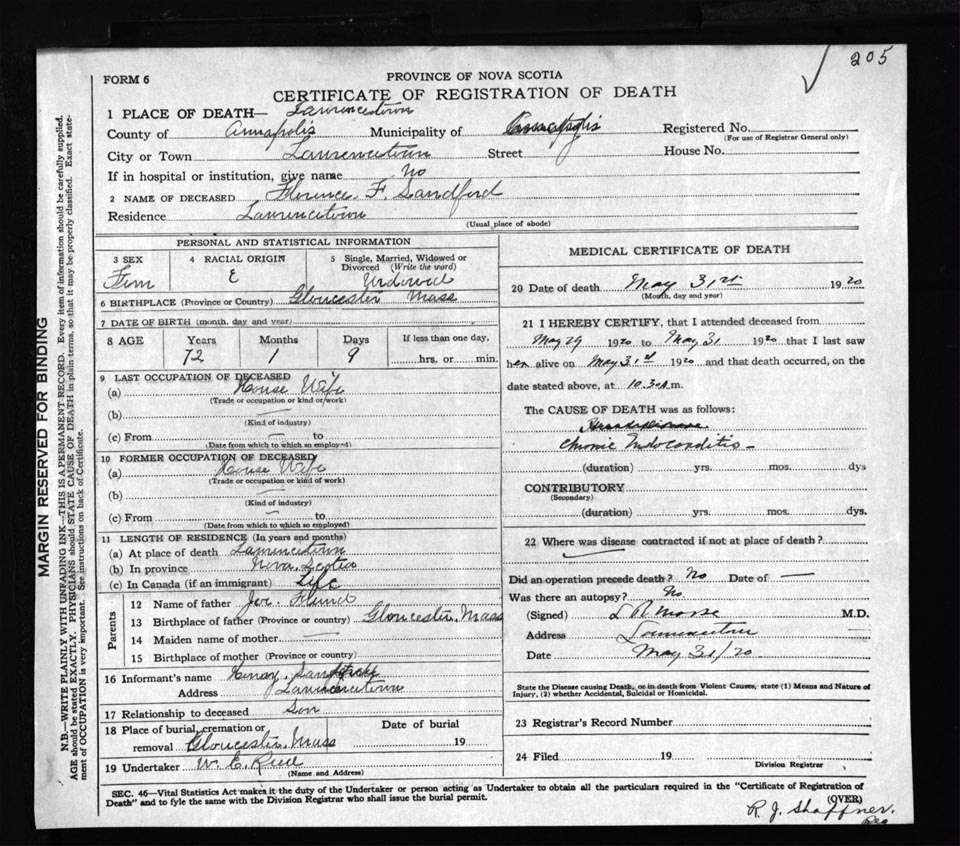 205
FORM 6
PROVINCE OF NOVA SCOTIA
CERTIFICATE OF REGISTRATION OF DEATH
1 PLACE OF DEATH— Lawrencetown
County of Annapolis Municipality of Annapolis Registered No.
(For use of Registrar General only)
City or Town Lawrencetown Street House No.
If in hospital or institution, give name No
2 NAME OF DECEASED Florence F. Sandford
Residence Lawrencetown
(Usual place of abode)
PERSONAL AND STATISTICAL INFORMATION
3 SEX 4 RACIAL ORIGIN 5 Single, Married, Widowed or
Divorced (Write the word)
Fem E Widowed
6 BIRTHPLACE (Province or Country) Gloucester Mass
7 DATE OF BIRTH (month, day and year)
8 AGE Years Months Days If less than one day,
72 1 9 hrs. or min.
9 LAST OCCUPATION OF DECEASED
(a) House Wife
(Trade or occupation or kind of work)
(b) —
(Kind of industry)
(c) From — to
(Date from which to which so employed)
10 FORMER OCCUPATION OF DECEASED
(a) House Wife
(Trade or occupation or kind of work)
(b) —
(Kind of industry)
(c) From — to
(Date from which to which so employed)
11 LENGTH OF RESIDENCE (In years and months)
(a) At place of death Lawrencetown
(b) In province Nova Scotia
(c) In Canada (if an immigrant) Life
Parents
12 Name of father Joe
13 Birthplace of father (Province or country) Gloucester, Mass
14 Maiden name of mother —
15 Birthplace of mother (Province or country)
16 Informant's name
Address Lawrencetown
17 Relationship to deceased Son
18 Place of burial, cremation or Date of burial
removal Gloucester, Mass 19
19 Undertaker W. C.
(Name and Address)
MEDICAL CERTIFICATE OF DEATH
20 Date of death May 31st 1920
(Month, day and year)
21 I HEREBY CERTIFY, that I attended deceased from
May 29 1920 to May 31 1920 that I last saw
her alive on May 31st 1920 and that death occurred, on the
date stated above, at 10.30 A m.
The CAUSE OF DEATH was as follows:
Chronic Endocarditis —
(duration) yrs. mos. dys
CONTRIBUTORY
(Secondary)
(duration) yrs. mos. dys.
22 Where was disease contracted if not at place of death?
Did an operation precede death? No Date of —
Was there an autopsy? No
(Signed) L R Morse M.D.
Address Lawrencetown
Date May 31/20
State the Disease causing Death, or in death from Violent Causes, state (1) Means and Nature of
Injury, (2) whether Accidental, Suicidal or Homicidal.
23 Registrar's Record Number
24 Filed 19
Division Registrar
SEC. 46—Vital Statistics Act makes it the duty of the Undertaker or person acting as Undertaker to obtain all the particulars required in the "Certificate of Registration of
Death" and to fyle the same with the Division Registrar who shall issue the burial permit.
(OVER)
R. J. Shaffner.
Reg
MARGIN RESERVED FOR BINDING
N.B.—WRITE PLAINLY WITH UNFADING INK—THIS IS A PERMANENT RECORD. Every item of information should be carefully supplied.
AGE should be stated EXACTLY. PHYSICIANS should STATE CAUSE OF DEATH in plain terms, so that it may be properly classified. Exact state-
ment of OCCUPATION is very important. See instructions on back of Certificate.